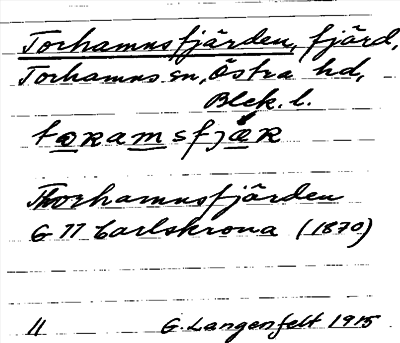 Torhamnsfjärden, fjärd,
Torhamns sn, Östra hd,
Blek. l.
toramsfjæR
Thorhamnsfjärden
G 11 Carlskrona (1870)
11 G. Langenfelt 1915